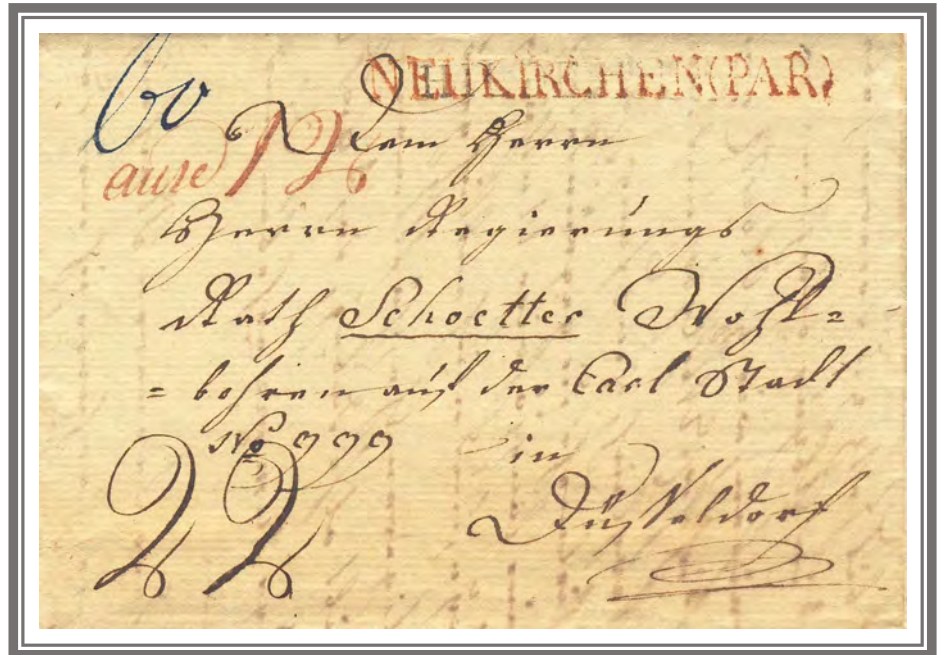 NEUKIRCHEN(PAR)
60
Dem Herrn
12
Herrn Regierungs
Rath Schoetter Wohl=
=bohren auf der Carl Stadt
No 999
in
22
Düsseldorf